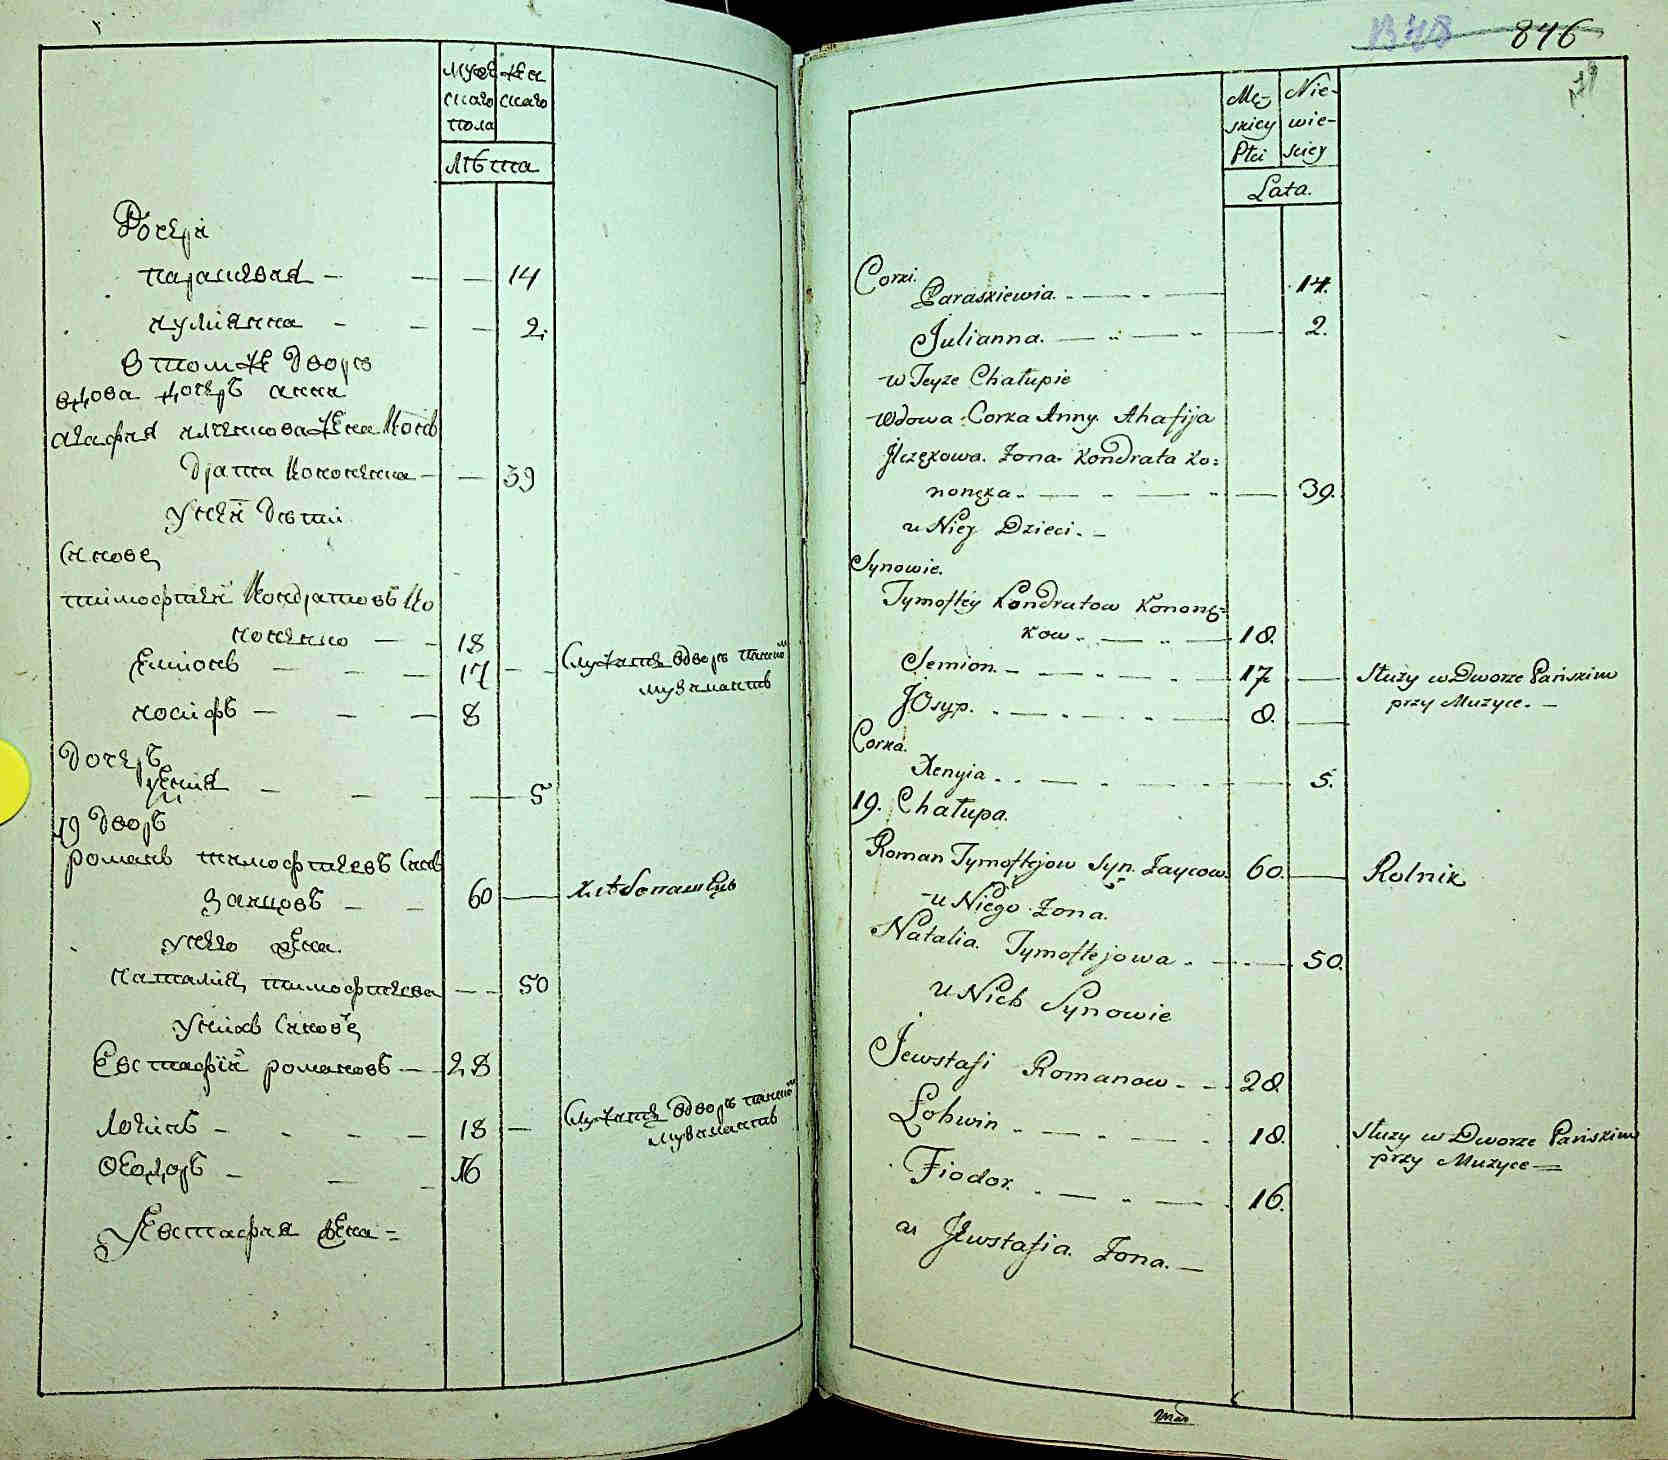 Мужескаго пола
Женскаго
Лѣта
Дочери
Параскевия 14
иулианна 2.
втомже дворѣ
вдова дочерь анна
агафия иличкова жена Кон
драта Кононенка 39
У неи дѣти
Синове
тимофтей Кондратовъ Ко
ноненко 18
Семионъ 17 Служитъ вдворѣ панском музикантъ
иосифъ 8
Дочерь
Ксения 5
19 Дворъ
романъ тимофтиевъ Синъ
Заицовъ 60 Хлѣбопашецъ
У него жена.
наталия тимофтиева 50
У нихъ Синове
Евстафий романовъ 28
Логинъ 18 Служитъ вдворѣ панском музикантъ
Ѳеодоръ 16
У Евстафия жена
846
Męskiey Płci
Niewieściey
Lata.
Corki.
Paraskiewia. 14.
Julianna. 2.
w Teyże Chałupie
Wdowa Corka Anny. Ahafija
Jlczękowa. Żona Kondrata Ko:
nonęka 39.
u Niey Dzieci.
Synowie.
Tymoftey Kondratow Kononę=
kow 18.
Semion. 17 Służy w Dworze Pańskim przy Muzyce.
JOsyp. 8.
Corka.
Xenyia 5.
19. Chałupa.
Roman Tymoftejow Syn Zaycow 60. Rolnik
u Niego Żona.
Natalia. Tymoftejowa 50.
U Nich Synowie
Jewstafi Romanow 28
Łohwin 18. Służy w Dworze Pańskim przy Muzyce
Fiodor. 16.
u Jewstafia. Żona.